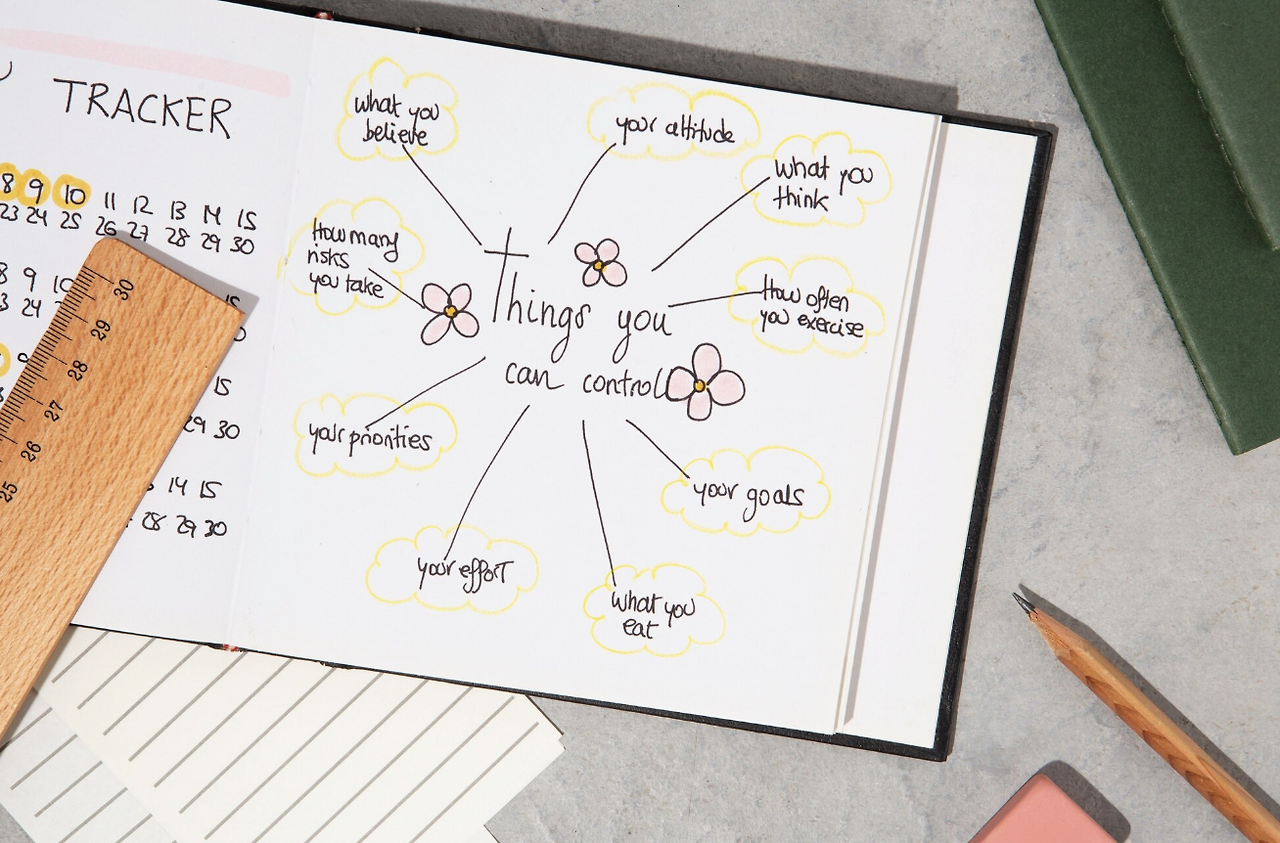 TRACKER
8 9 10 11 12 13 14 15
23 24 25 26 27 28 29 30
8 9 10
24
15
15
29 30
14 15
28 29 30
30
29
28
27
26
25
what you
believe
your attitude
what you
think
How many
risks
you take
Things you
can control
How often
you exercise
your priorities
your goals
your effort
what you
eat